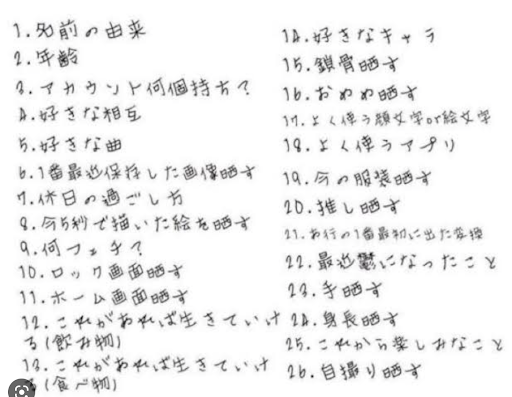 1.名前の由来
2.年齢
3.アカウント何個持ち?
4.好きな相互
5.好きな曲
6.1番最近保存した画像晒す
7.休日の過ごし方
8.今5秒で描いた絵を晒す
9.何フェチ?
10.ロック画面晒す
11.ホーム画面晒す
12.これがあれば生きていけ
る(飲み物)
13.これがあれば生きていけ
る(食べ物)
14.好きなキャラ
15.鎖骨晒す
16.おめめ晒す
17.よく使う顔文字or絵文字
18.よく使うアプリ
19.今の服装晒す
20.推し晒す
21.お行の1番最初に出た変換
22.最近鬱になったこと
23.手晒す
24.身長晒す
25.これから楽しみなこと
26.自撮り晒す